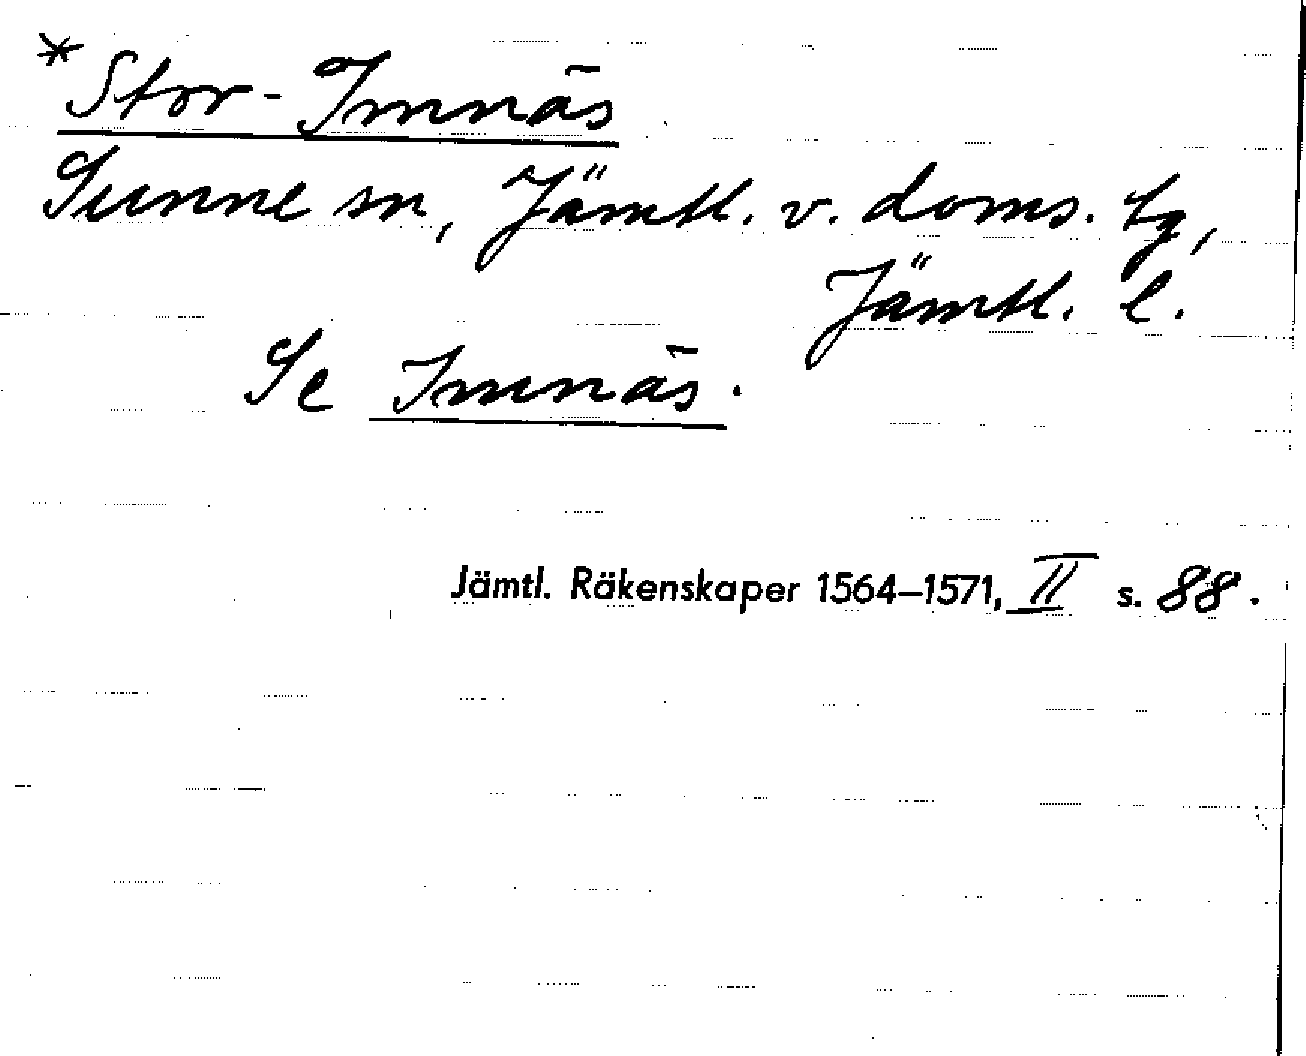 *Stor-Imnäs
Sunne sn, Jämtl. v. doms. tg,
Jämtl. l.
Se Imnäs.
Jämtl. Räkenskaper 1564–1571, II s. 88.